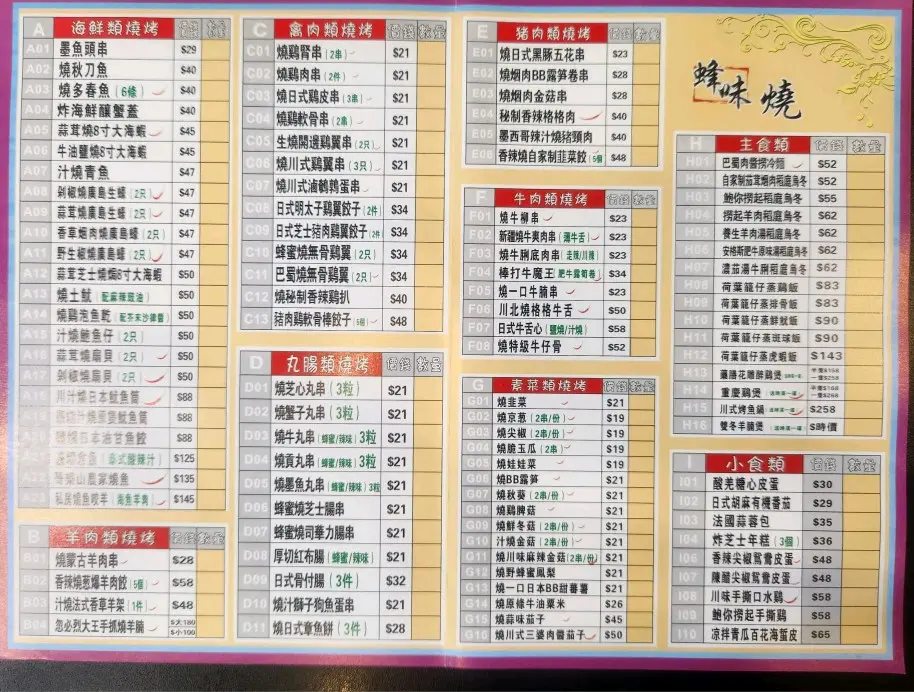 A 海鮮類燒烤 價錢 數量
A01 墨魚頭串 $29
A02 燒秋刀魚 $40
A03 燒多春魚(6條) $40
A04 炸海鮮釀蟹蓋 $40
A05 蒜茸燒8寸大海蝦 $45
A06 牛油鹽燒8寸大海蝦 $45
A07 汁燒青魚 $47
A08 剁椒燒廣島生蠔(2只) $47
A09 蒜茸燒廣島生蠔(2只) $47
A10 香草焗肉燒廣島蠔(2只) $47
A11 野生椒燒廣島生蠔(2只) $47
A12 蒜茸芝士燒焗8寸大海蝦 $50
A13 燒土魷(配麻辣豉油) $50
A14 燒鷄泡魚乾(配芥末沙律醬) $50
A15 汁燒鮑魚仔(2只) $50
A16 蒜茸燒扇貝(2只) $50
A17 剁椒燒扇貝(2只) $50
川汁燒日本魷魚筒 $88
$88
日本油甘魚鮫 $88
(泰式酸辣汁) $125
$135
私房燒魚咬羊(拖魚羊爽) $145
B 羊肉類燒烤 價錢 數量
B01 燒蒙古羊肉串 $28
B02 香辣燒葱爆羊肉餃(5個) $58
B03 汁燒法式香草羊架(1件) $48
B04 忽必烈大王手抓燒羊腩 $大180 $小100
C 禽肉類燒烤 價錢 數量
C01 燒鷄腎串(2串) $21
C02 燒鷄肉串(2件) $21
C03 燒日式鷄皮串(3串) $21
C04 燒鷄軟骨串(2串) $21
C05 生燒開邊鷄翼串(2只) $21
C06 燒川式鷄翼串(3只) $21
C07 燒川式滷鵪鶉蛋串 $21
C08 日式明太子鷄翼餃子(2件) $34
C09 日式芝士豬肉鷄翼餃子(2件 $34
C10 蜂蜜燒無骨鷄翼(2只) $34
C11 巴蜀燒無骨鷄翼(2只) $34
C12 燒秘制香辣鷄扒 $40
C13 豬肉鷄軟骨棒餃子(5個) $48
D 丸腸類燒烤 價錢 數量
D01 燒芝心丸串(3粒) $21
D02 燒蟹子丸串(3粒) $21
D03 燒牛丸串(蜂蜜/辣味)3粒 $21
D04 燒貢丸串(蜂蜜/辣味)3粒 $21
D05 燒墨魚丸串(蜂蜜/辣味)3粒 $21
D06 蜂蜜燒芝士腸串 $21
D07 蜂蜜燒司華力腸串 $21
D08 厚切紅布腸(蜂蜜/辣味) $21
D09 日式骨付腸(3件) $32
D10 燒汁獅子狗魚蛋串 $21
D11 燒日式章魚餅(3件) $28
E 豬肉類燒烤 價錢 數量
E01 燒日式黑豚五花串 $23
E02 燒烟肉BB露笋卷串 $28
E03 燒烟肉金菇串 $28
E04 秘制香辣格格肉 $40
E05 墨西哥辣汁燒豬頸肉 $40
E06 香辣燒自家制韮菜餃(5個 $48
F 牛肉類燒烤 價錢 數量
F01 燒牛柳串 $23
F02 新疆燒牛爽肉串(薄牛舌) $23
F03 燒牛脷底肉串(走辣/川辣) $23
F04 棒打牛魔王(肥牛露筍卷) $34
F05 燒一口牛腩串 $23
F06 川北燒格格牛舌 $50
F07 日式牛舌心(鹽燒/汁燒) $58
F08 燒特級牛仔骨 $52
G 素菜類燒烤 價錢 數量
G01 燒韭菜 $21
G02 燒京葱(2串/份) $19
G03 燒尖椒(2串/份) $19
G04 燒脆玉瓜(2串) $19
G05 燒娃娃菜 $19
G06 燒BB露笋 $21
G07 燒秋葵(2串/份) $21
G08 燒鷄脾菇 $21
G09 燒鮮冬菇(2串/份) $21
G10 汁燒金菇(2串/份) $21
G11 燒川味麻辣金菇(2串/份) $21
G12 燒野蜂蜜鳳梨 $21
G13 燒一口日本BB甜蕃薯 $21
G14 燒原條牛油粟米 $26
G15 燒蒜味茄子 $45
G16 燒川式三婆肉醬茄子 $50
蜂味燒
H 主食類 價錢 數量
H01 巴蜀肉醬撈冷麵 $52
H02 自家制茄茸焗肉稻庭烏冬 $52
H03 鮑你撈起稻庭烏冬 $55
H04 撈起羊肉稻庭烏冬 $62
H05 養生羊肉湯稻庭烏冬 $62
H06 安格斯肥牛原味湯稻庭烏冬 $62
H07 濃茄湯牛脷稻庭烏冬 $62
H08 荷葉籠仔蒸鷄飯 $83
H09 荷葉籠仔蒸排骨飯 $83
H10 荷葉籠仔蒸鮮魷飯 $90
H11 荷葉籠仔蒸斑球飯 $90
H12 荷葉籠仔蒸虎蝦飯 $143
H13 藥膳花雕醉鷄煲 半隻$158 一隻$258
重慶鷄煲 半隻$168 一隻$268
H15 川式烤魚鍋 $258
H16 雙冬羊腩煲 $時價
I 小食類 價錢 數量
I01 酸羌糖心皮蛋 $30
I02 日式胡麻有機番茄 $29
I03 法國蒜蓉包 $35
I04 炸芝士年糕(3個) $36
I06 香辣尖椒鴛鴦皮蛋 $48
I07 陳醋尖椒鴛鴦皮蛋 $48
I08 川味手撕口水鷄 $58
I09 鮑你撈起手撕鷄 $58
I10 凉拌青瓜百花海蜇皮 $65